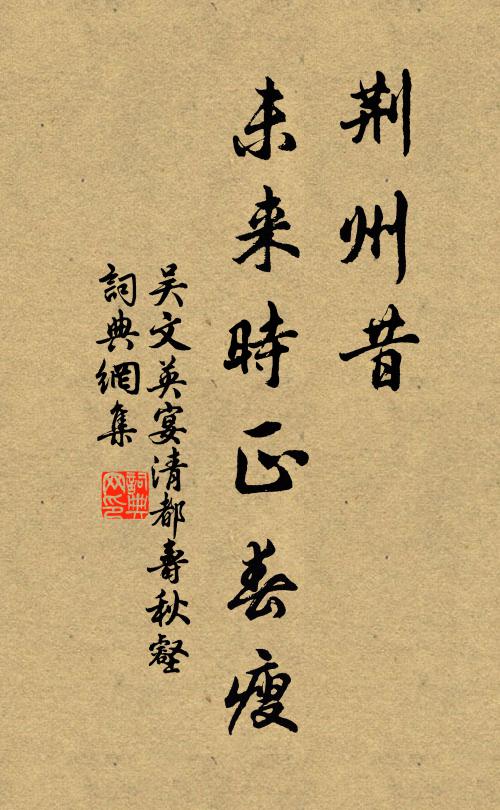 荆州昔
未来時正春瘦
吴文英宴清都壽秋壑
詞典網集
詞典网印